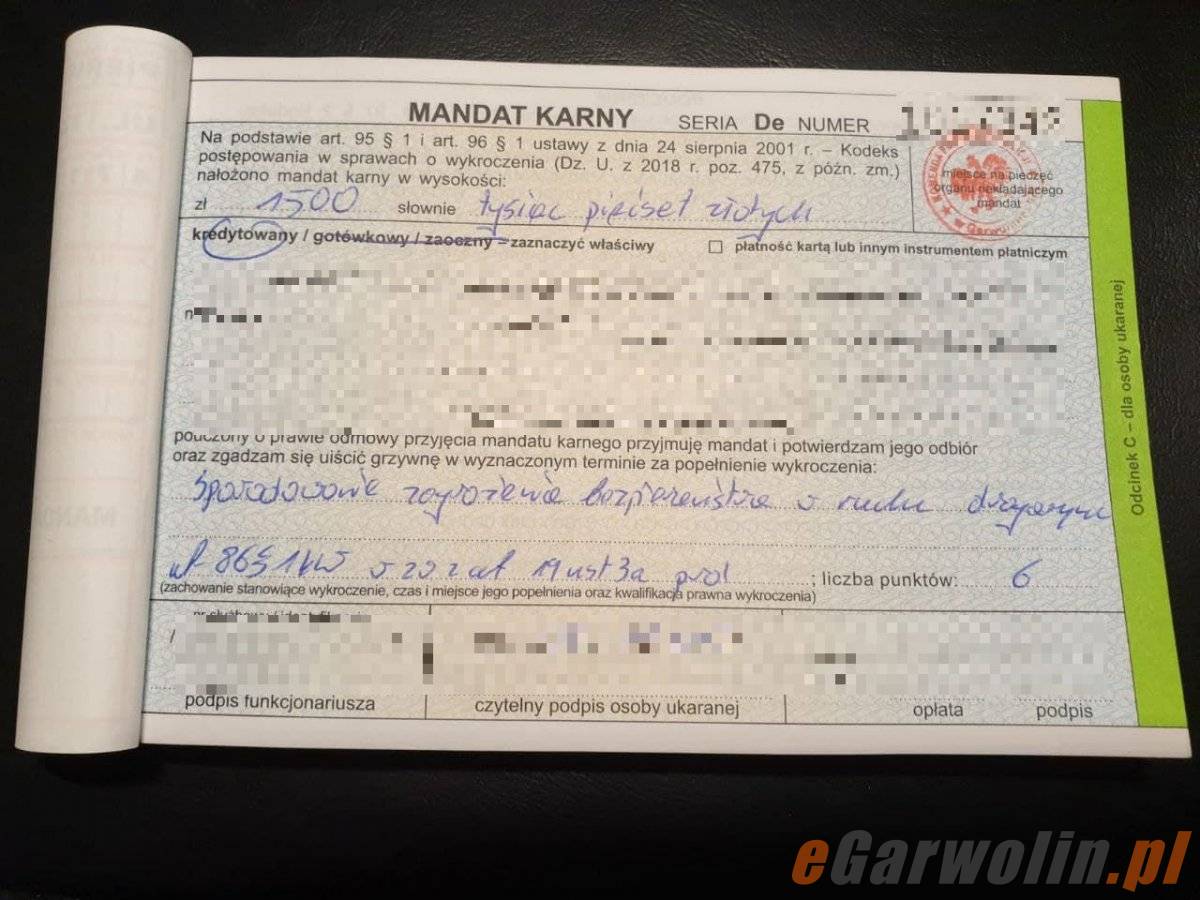 MANDAT KARNY SERIA De NUMER
Na podstawie art. 95 § 1 i art. 96 § 1 ustawy z dnia 24 sierpnia 2001 r. – Kodeks
postępowania w sprawach o wykroczenia (Dz. U. z 2018 r. poz. 475, z późn. zm.)
nałożono mandat karny w wysokości:
miejsce na pieczęć
organu nakładającego
mandat
zł 1500 słownie tysiąc pięćset złotych
kredytowany / gotówkowy / zaoczny – zaznaczyć właściwy
płatność kartą lub innym instrumentem płatniczym
pouczony o prawie odmowy przyjęcia mandatu karnego przyjmuję mandat i potwierdzam jego odbiór
oraz zgadzam się uiścić grzywnę w wyznaczonym terminie za popełnienie wykroczenia:
Spowodowanie zagrożenia bezpieczeństwa w ruchu drogowym
86§1kw 19 ust 3a prd ; liczba punktów: 6
(zachowanie stanowiące wykroczenie, czas i miejsce jego popełnienia oraz kwalifikacja prawna wykroczenia)
podpis funkcjonariusza
czytelny podpis osoby ukaranej
opłata podpis
Odcinek C – dla osoby ukaranej
eGarwolin.pl